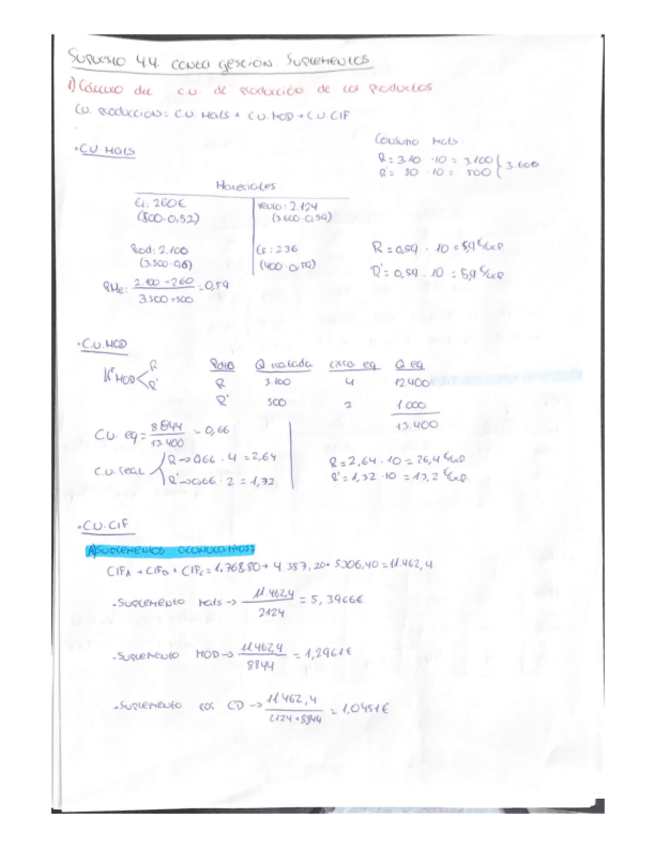 SUPUESTO 4.4. CONTA GESTIÓN. SUPLEMENTOS
1) Cálculo del c.u. de producción de los productos
Cu. producción = C.U. Mats + C.U. MOD + C.U. CIF
Consumo Mats:
· CU Mats
R = 310 · 10 = 3.100
R' = 50 · 10 = 500
3.600
Materiales
Ei: 260€
(500·0,52)
2.124
(3.600·0,59)
Prod: 2.100
(3.500·0,6)
Ef: 236
(400·0,59)
R = 0,59 · 10 = 5,9 €/
R' = 0,59 · 10 = 5,9 €/
PMe: 2.100 + 260 / 3.500 + 500 = 0,59
· C.U. MOD
Pdto Q cisco eq Q eq
Nº MOD R R'
R 3.100 4 12.400
R' 500 2 1.000
13.400
C.U. eq = 8844 / 13.400 = 0,66
C.U. real
R → 0,66 · 4 = 2,64
R' → 0,66 · 2 = 1,32
R = 2,64 · 10 = 26,4 €/
R' = 1,32 · 10 = 13,2 €/
· C.U. CIF
A) Suplementos
CIFA + CIFB + CIFC = 1.768,80 + 4.387,20 + 5306,40 = 11.462,4
- Suplemento Mats → 11.462,4 / 2124 = 5,3966€
- Suplemento MOD → 11.462,4 / 8844 = 1,2961€
- Suplemento los CD → 11.462,4 / 2124 + 8844 = 1,0451€